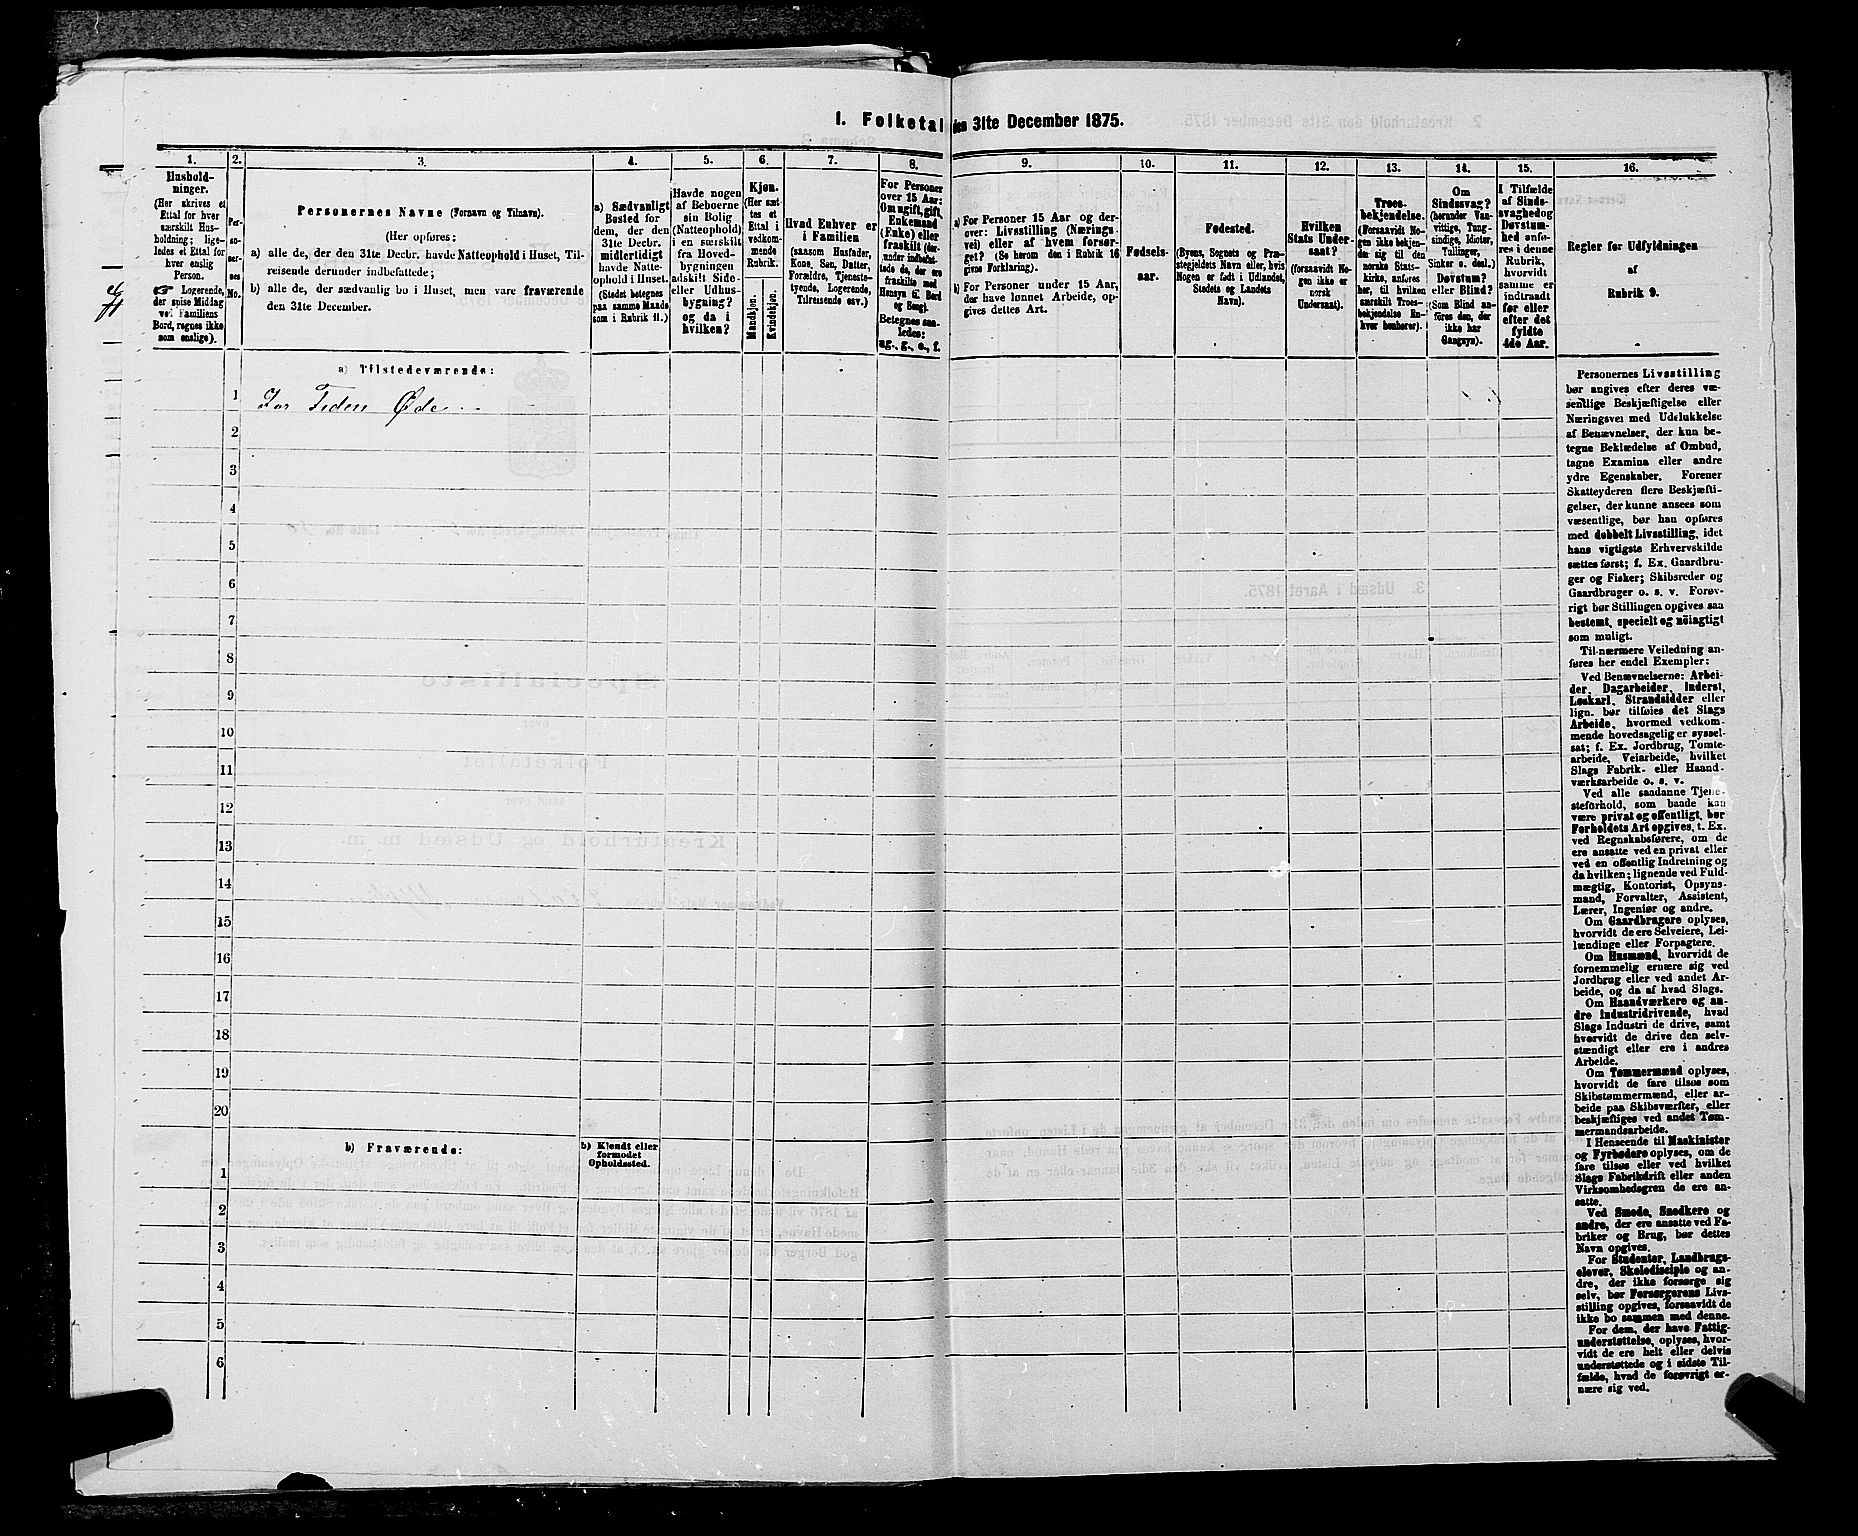 1. Folketal den 31te December 1875.
1.
2.
3.
4.
5.
6.
7.
8.
9.
10.
11.
12.
13.
14.
15.
16.
Husholdninger.
(Her skrives et
Ettal for hver
særskilt Husholdning;
ligeledes et Ettal for
hver enslig
Person.
☞ Logerende,
der spise Middag
ved Familiens
Bord, regnes ikke
som enslige).
Personernes No.
Personernes Navne (Fornavn og Tilnavn).
(Her opføres:
a) alle de, der den 31te Decbr. havde Natteophold i Huset, Tilreisende derunder indbefattede;
b) alle de, der sædvanlig bo i Huset, men vare fraværende
den 31te December.
a) Sædvanligt
Bosted for
dem, der den
31te Decbr.
midlertidigt
havde Natteophold i Huset.
(Stedet betegnes
paa samme Maade
som i Rubrik 11.)
Havde nogen
af Beboerne
sin Bolig
(Natteophold)
i en særskilt
fra Hovedbygningen
adskilt Side-
eller Udhusbygning?
og da i
hvilken?
Kjøn.
(Her sættes et
Ettal i
vedkommende
Rubrik.
Mandkjøn.
Kvindekjøn.
Hvad Enhver er
i Familien
(saasom Husfader,
Kone, Søn, Datter,
Forældre, Tjenestetyende, Logerende,
Tilreisende osv.)
For Personer
over 15 Aar:
Om ugift, gift,
Enkemand
(Enke) eller
fraskilt (derunder indbefattede de, der ere
fraskilte med
Hensyn til Bord
og Seng).
Betegnes saaledes:
ug., g., e., f.
a) For Personer 15 Aar og derover: Livsstilling (Næringsvei) eller af hvem forsørget? (Se herom den i Rubrik 16
givne Forklaring).
b) For Personer under 15 Aar,
der have lønnet Arbeide, opgives dettes Art.
Fødselsaar.
Fødested.
(Byens, Sognets og Præstegjeldets Navn eller, hvis
Nogen er født i Udlandet,
Stedets og Landets
Navn).
Hvilken
Stats Undersaat?
(forsaavidt Nogen ikke er
norsk
Undersaat).
Troesbekjendelse.
(Forsaavidt Nogen ikke bekjender sig til den
norske Statskirke, anføres
her, til hvilken
særskilt Troesbekjendelse Enhver henhører).
Om
Sindssvag?
(herunder Vanvittige, Tungsindige, Idioter,
Tullinger,
Sinker o. desl.)
Døvstum?
eller Blind?
(Som Blind anføres den, der
ikke har
Gangsyn).
I Tilfælde
af Sindssvaghed og
Døvstumhed anføres i denne
Rubrik,
hvorvidt
samme er
indtraadt
før eller
efter det
fyldte
4de Aar.
Regler for Udfyldningen
af
Rubrik 9.
a) Tilstedeværende:
1
For Tiden Øde
2
3
4
5
6
7
8
9
10
11
12
13
14
15
16
17
18
19
20
b) Fraværende:
b) Kjendt eller
formodet
Opholdssted.
1
2
3
4
5
6
Personernes Livsstilling
bør angives efter deres væsentlige Beskjæftigelse eller
Næringsvei med Udelukkelse
af Benævnelser, der kun betegne Beklædelse af Ombud,
tagne Examina eller andre
ydre Egenskaber. Forener
Skatteyderen flere Beskjæftigelser, der kunne ansees som
væsentlige, bør han opføres
med dobbelt Livsstilling, idet
hans vigtigste Erhvervskilde
sættes først; f. Ex. Gaardbruger og Fisker; Skibsreder og
Gaardbruger o. s. v. Forøvrigt bør Stillingen opgives saa
bestemt, specielt og nöiagtigt
som muligt.
Til nærmere Veiledning anføres her endel Exempler:
Ved Benævnelserne: Arbeider, Dagarbeider, Inderst,
Løskarl, Strandsidder eller
lign. bør tilføies det Slags
Arbeide, hvormed vedkommende hovedsagelig er sysselsat; f. Ex. Jordbrug, Tomtearbeide, Veiarbeide, hvilket
Slags Fabrik- eller Haandværksarbeide o. s. v.
Ved alle saadanne Tjenesteforhold, som baade kan
være privat og offentligt, bør
Forholdets Art opgives, t. Ex.
ved Regnskabsførere, om de
ere ansatte ved en privat eller
ved en offentlig Indretning og
da hvilken; lignende ved Fuldmægtig, Kontorist, Opsynsmand, Forvalter, Assistent,
Lærer, Ingeniør og andre.
Om Gaardbrugere oplyses,
hvorvidt de ere Selveiere, Leilændinge eller Forpagtere.
Om Husmænd, hvorvidt de
fornemmelig ernære sig ved
Jordbrug eller ved andet Arbeide, og da af hvad Slags.
Om Haandværkere og andre Industridrivende, hvad
Slags Industri de drive, samt
hvorvidt de drive den selvstændigt eller ere i andres
Arbeide.
Om Tømmermænd oplyses,
hvorvidt de fare tilsøs som
Skibstømmermænd, eller arbeide paa Skibsværfter, eller
beskjæftiges ved andet Tømmermandsarbeide.
I Henseende til Maskinister
og Fyrbødere oplyses, om de
fare tilsøs eller ved hvilket
Slags Fabrikdrift eller anden
Virksomhedsgren de ere ansatte.
Ved Smede, Snedkere og
andre, der ere ansatte ved Fabriker og Brug, bør dettes
Navn opgives.
For Studenter, Landbrugselever, Skoledisciple og andre, der ikke forsørge sig
selv, bør Forsørgerens Livsstilling opgives, forsaavidt de
ikke bo sammen med denne.
For dem, der have Fattigunderstøttelse, oplyses, hvorvidt de ere helt eller delvis
understøttede og i sidste Tilfælde, hvad de forøvrigt ernære sig ved.